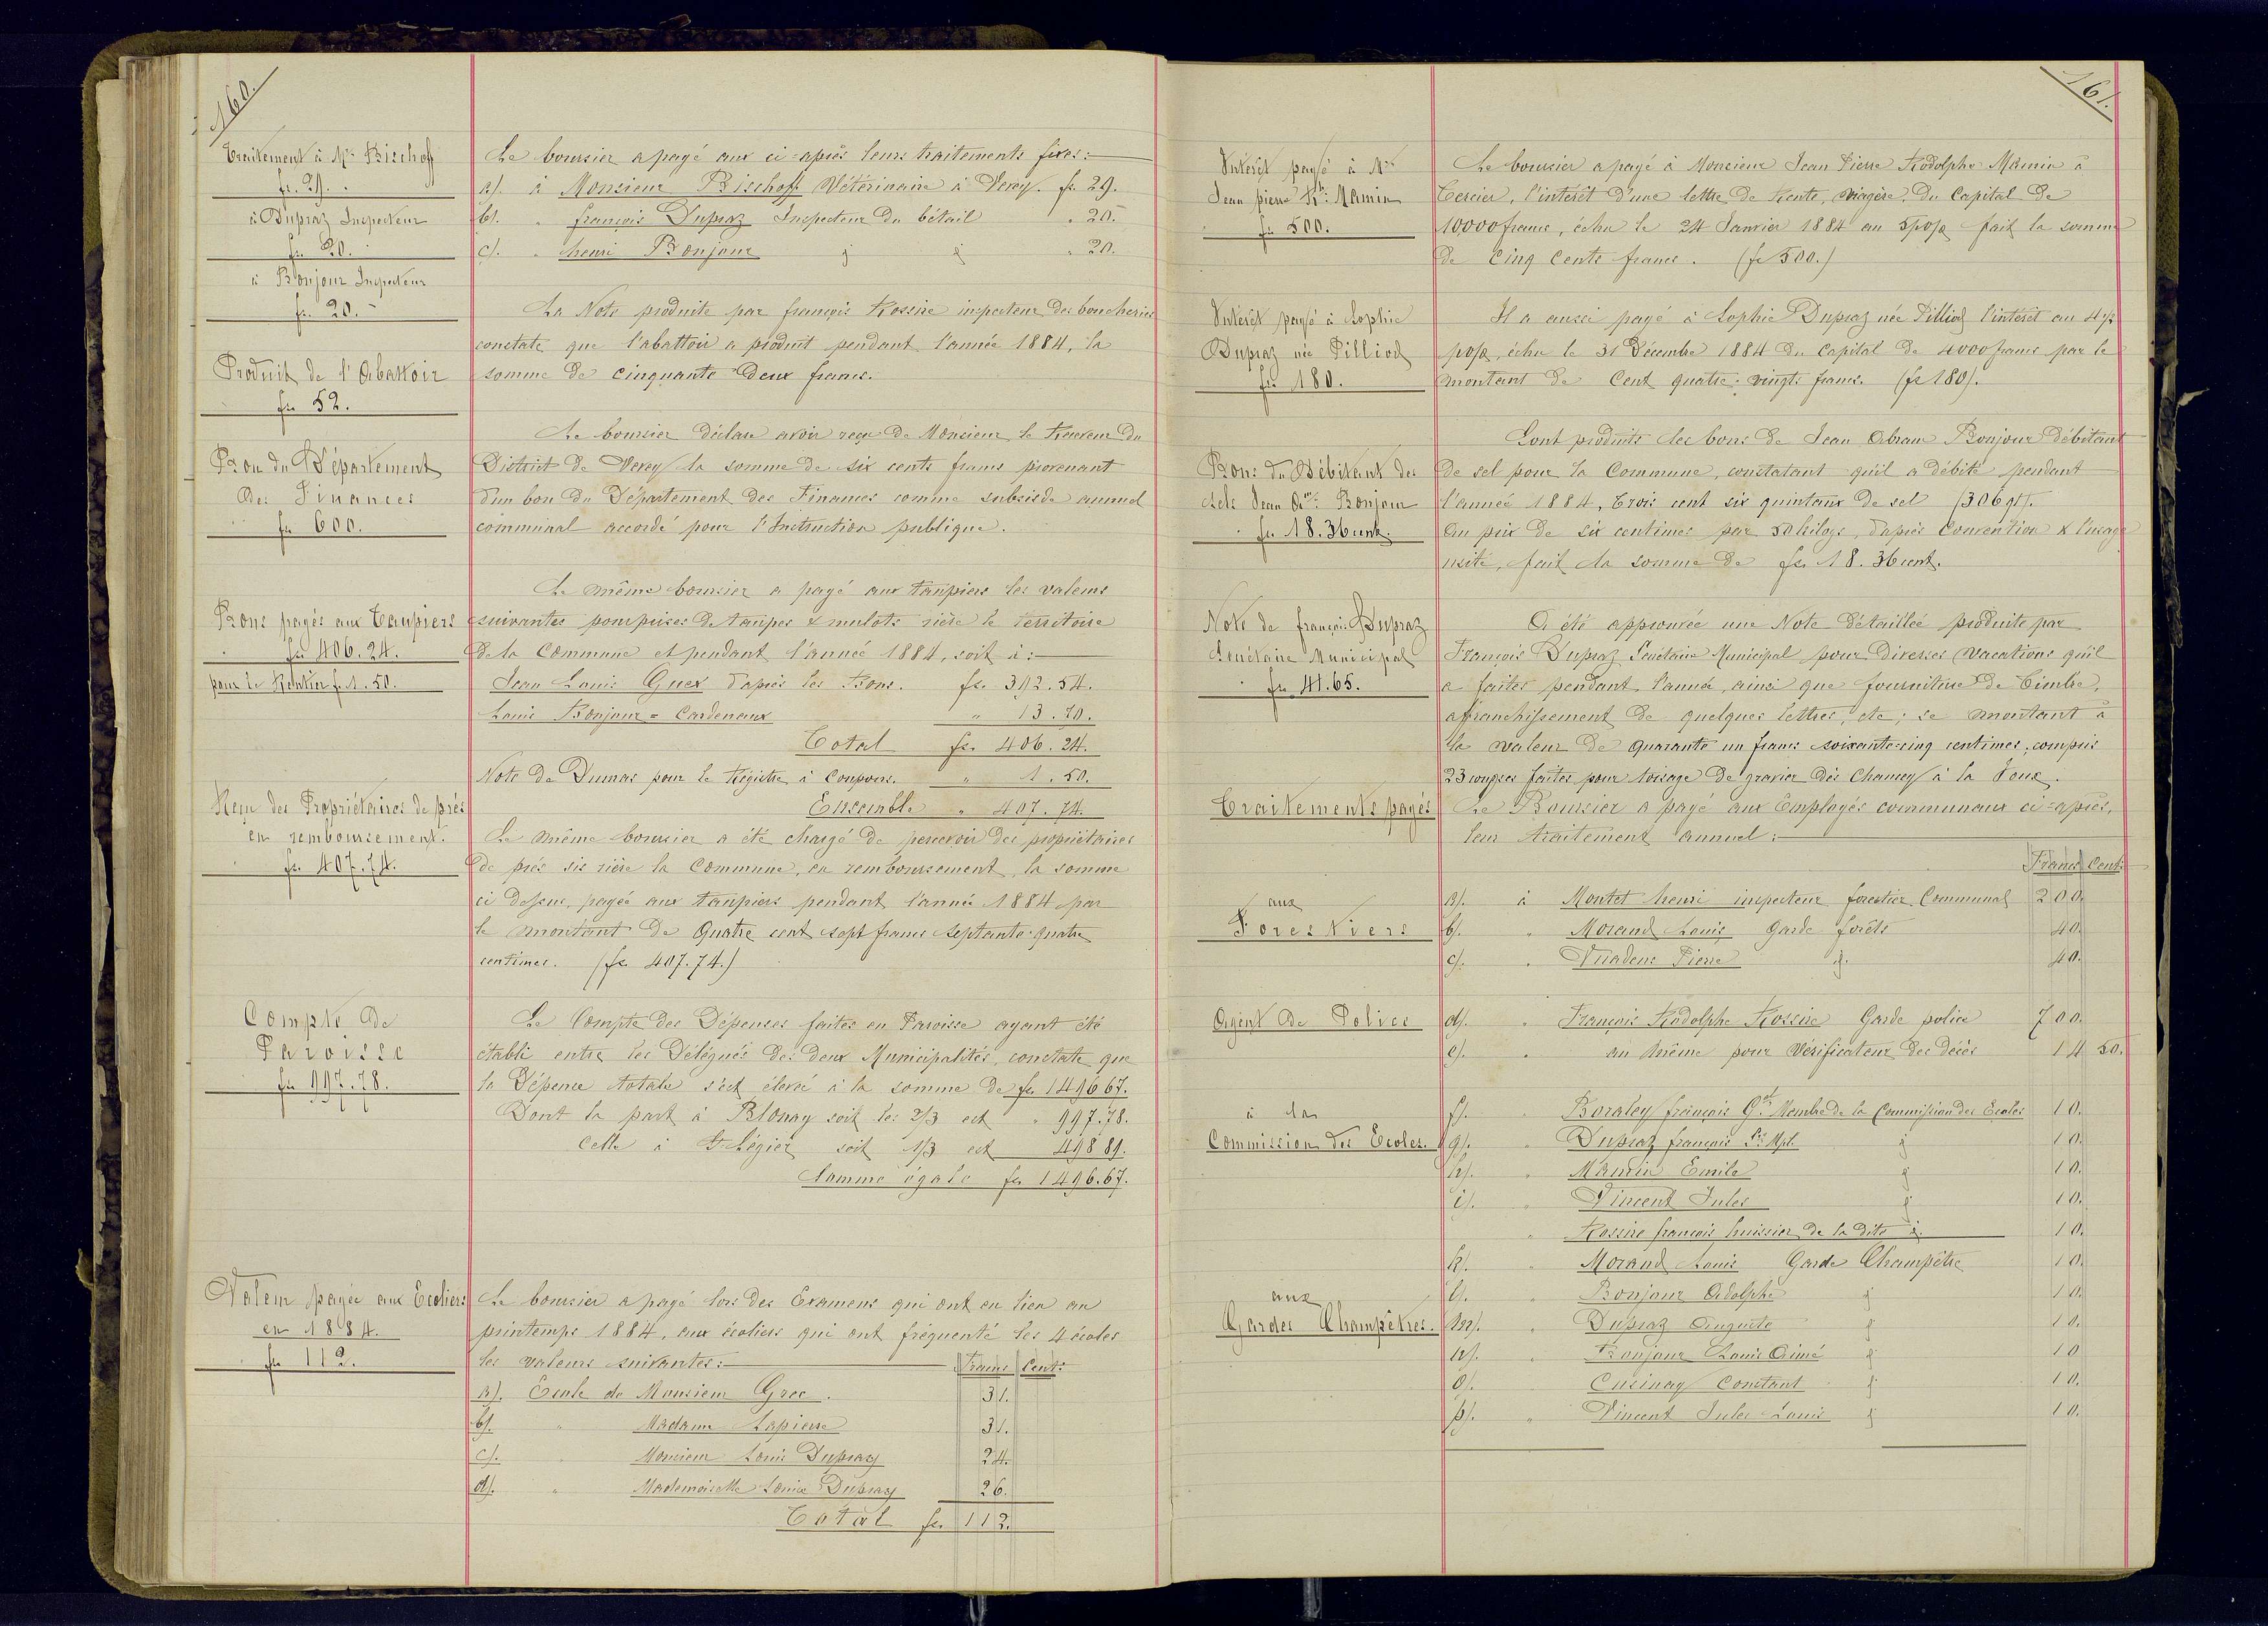 160.
Traitement à Mr Bischoff
fr. 29.
à Dupraz Inspecteur
fr. 20.
à Bonjour Inspecteur
fr. 20.
Le boursier a payé aux ci-après leurs traitements fixes:
a). à Monsieur Bischoff Vétérinaire à Vevey. fr. 29.
b). " françois Dupraz Inspecteur du bétail " 20.
c). " henri Bonjour " 20.
Produit de l'Abattoir
fr. 52.
La Note produite par françois Rossire inspecteur des boucheries
constate que l'abattoir a produit pendant l'année 1884, la
somme de cinquante deux francs.
Bon du Département
des Finances
fr. 600.
Le boursier déclare avoir reçu de Monsieur le Receveur du
District de Vevey la somme de six cents francs provenant
d'un bon du Département des Finances comme subside annuel
communal accordé pour l'Instruction publique.
Bons payés aux Taupiers
fr. 406.24.
pour le Rentier f. 1.50.
Le même boursier a payé aux taupiers les valeurs
suivantes pour prises de taupes & mulots rière le territoire
de la Commune et pendant l'année 1884, soit à:
Jean Louis Guex d'après les Bons. fr. 392.54.
Louis Bonjour=Cardenaux " 13.70.
Total fr. 406.24.
Note de Dumas pour le Régistre à Coupons. " 1.50.
Ensemble " 407.74.
Reçu des Propriétaires de prés
en remboursement.
fr. 407.74.
Le même boursier a été chargé de percevoir des propriétaires
de prés sis rière la Commune, en remboursement, la somme
ci dessus, payée aux taupiers pendant l'année 1884 par
le montant de Quatre cent sept francs septante-quatre
centimes. (fr. 407.74.)
Compte de
Paroisse
fr. 997.78.
Le Compte des Dépenses faites en Paroisse ayant été
établi entre les Délégués des deux Municipalités, constate que
la Dépense totale s'est élevée à la somme de fr. 1496 67.
Dont la part à Blonay soit les 2/3 est " 997.78.
Celle à St-Légier soit 1/3 est 498 89.
Somme égale fr. 1496.67.
payée aux Ecoliers
en 1884.
fr. 112.
Le boursier a payé lors des Examens qui ont eu lieu au
printemps 1884, aux écoliers qui ont fréquenté les 4 écoles
les valeurs suivantes: Francs Cent:
a). Ecole de Monsieur Grec. 31.
b). " Madame Lapierre 31.
c). " Monsieur Louis Dupraz 24.
d). " Mademoiselle Louise Dupraz 26.
Total fr. 112.
161.
Intérêt payé à Mr
Jean pierre Rhe Mamin
fr. 500.
Le boursier a payé à Monsieur Jean Pierre Rodolphe Mamin à
Cercier, l'intérêt d'une lettre de Rente, viagère, du Capital de
10,000 francs, échu le 24 Janvier 1884 au 5 p% fait la somme
de Cinq Cents francs. (fr 500.)
Intérêt payé à Sophie
Dupraz née Pilliod
fr. 180.
Il a aussi payé à Sophie Dupraz née Pilliod l'intérêt au 4 ½
p%, échu le 31 Décembre 1884 du Capital de 4000 francs par le
montant de Cent quatre-vingts francs. (fr 180).
Bons du Débitant des
sels Jean Am: Bonjour
fr. 18.36 cent.
Sont produits les bons de Jean Abram Bonjour débitant
de sel pour la Commune, constatant qu'il a débité pendant
l'année 1884, Trois cent six quintaux de sel (306 qx).
Au prix de six centimes par 50 kilogs, d'après Convention & l'usage
usité, fait la somme de fr. 18.36 cent.
Note de françois Dupraz
Secrétaire Municipal
fr. 41.65.
A été approuvée une Note détaillée produite par
François Dupraz Secrétaire Municipal pour diverses vacations qu'il
a faites pendant l'année, ainsi que fourniture de timbre,
affranchissement de quelques lettres, etc; se montant à
la valeur de quarante un francs soixante-cinq centimes, compris
23 courses faites pour toisage de gravier dès Chamey à la Joux.
Traitements payés
Le Boursier a payé aux Employés communaux ci-après,
leur traitement annuel:
Francs Cent:
aux
Forestiers
a). à Montet henri inspecteur forestier Communal 200.
b). " Morand Louis Garde forêts 40.
c). " Vuadens Pierre 40.
Agent de Police
d). " François Rodolphe Rossire Garde police 700.
e). " au même pour Vérificateur des décès 14 50.
à la
Commission des Ecoles.
f). " Boraley françois Gel Membre de la Commission des Ecoles 10.
g). " Dupraz françois Sre Mpl. 10.
h). " Mamin Emile 10.
i). " Vincent Jules 10.
" Rossire françois huissier de la dite 10.
aux
Gardes Champêtres.
k). " Morand Louis Garde Champêtre 10.
l). " Bonjour Adolphe 10.
m). " Dupraz Auguste 10.
n). " Bonjour Louis Aimé 10
o). " Cusinay Constant 10.
p). " Vincent Jules Louis 10.